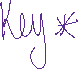 Key *